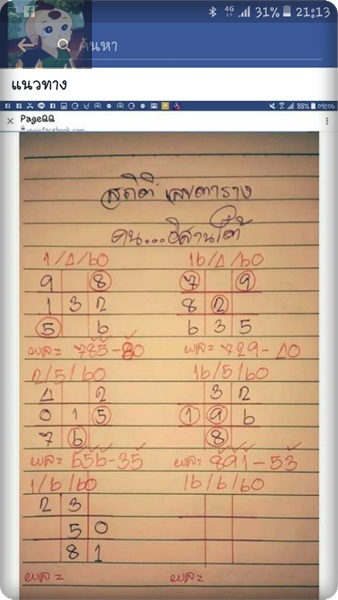 4G 31% 21:13
ค้นหา
แนวทาง
33% 09:06
PageQQ
สถิติ เลขตาราง
คน...อีสานใต้
1/4/60 16/4/60
9 8 7 9
1 3 2 8 2
5 6 6 3 5
ผล= 785-80 ผล= 729-40
2/5/60 16/5/60
4 2 3 2
0 1 5 1 9 6
7 6 8
ผล= 656-35 ผล= 891-53
1/6/60 16/6/60
2 3
5 0
8 1
ผล= ผล=